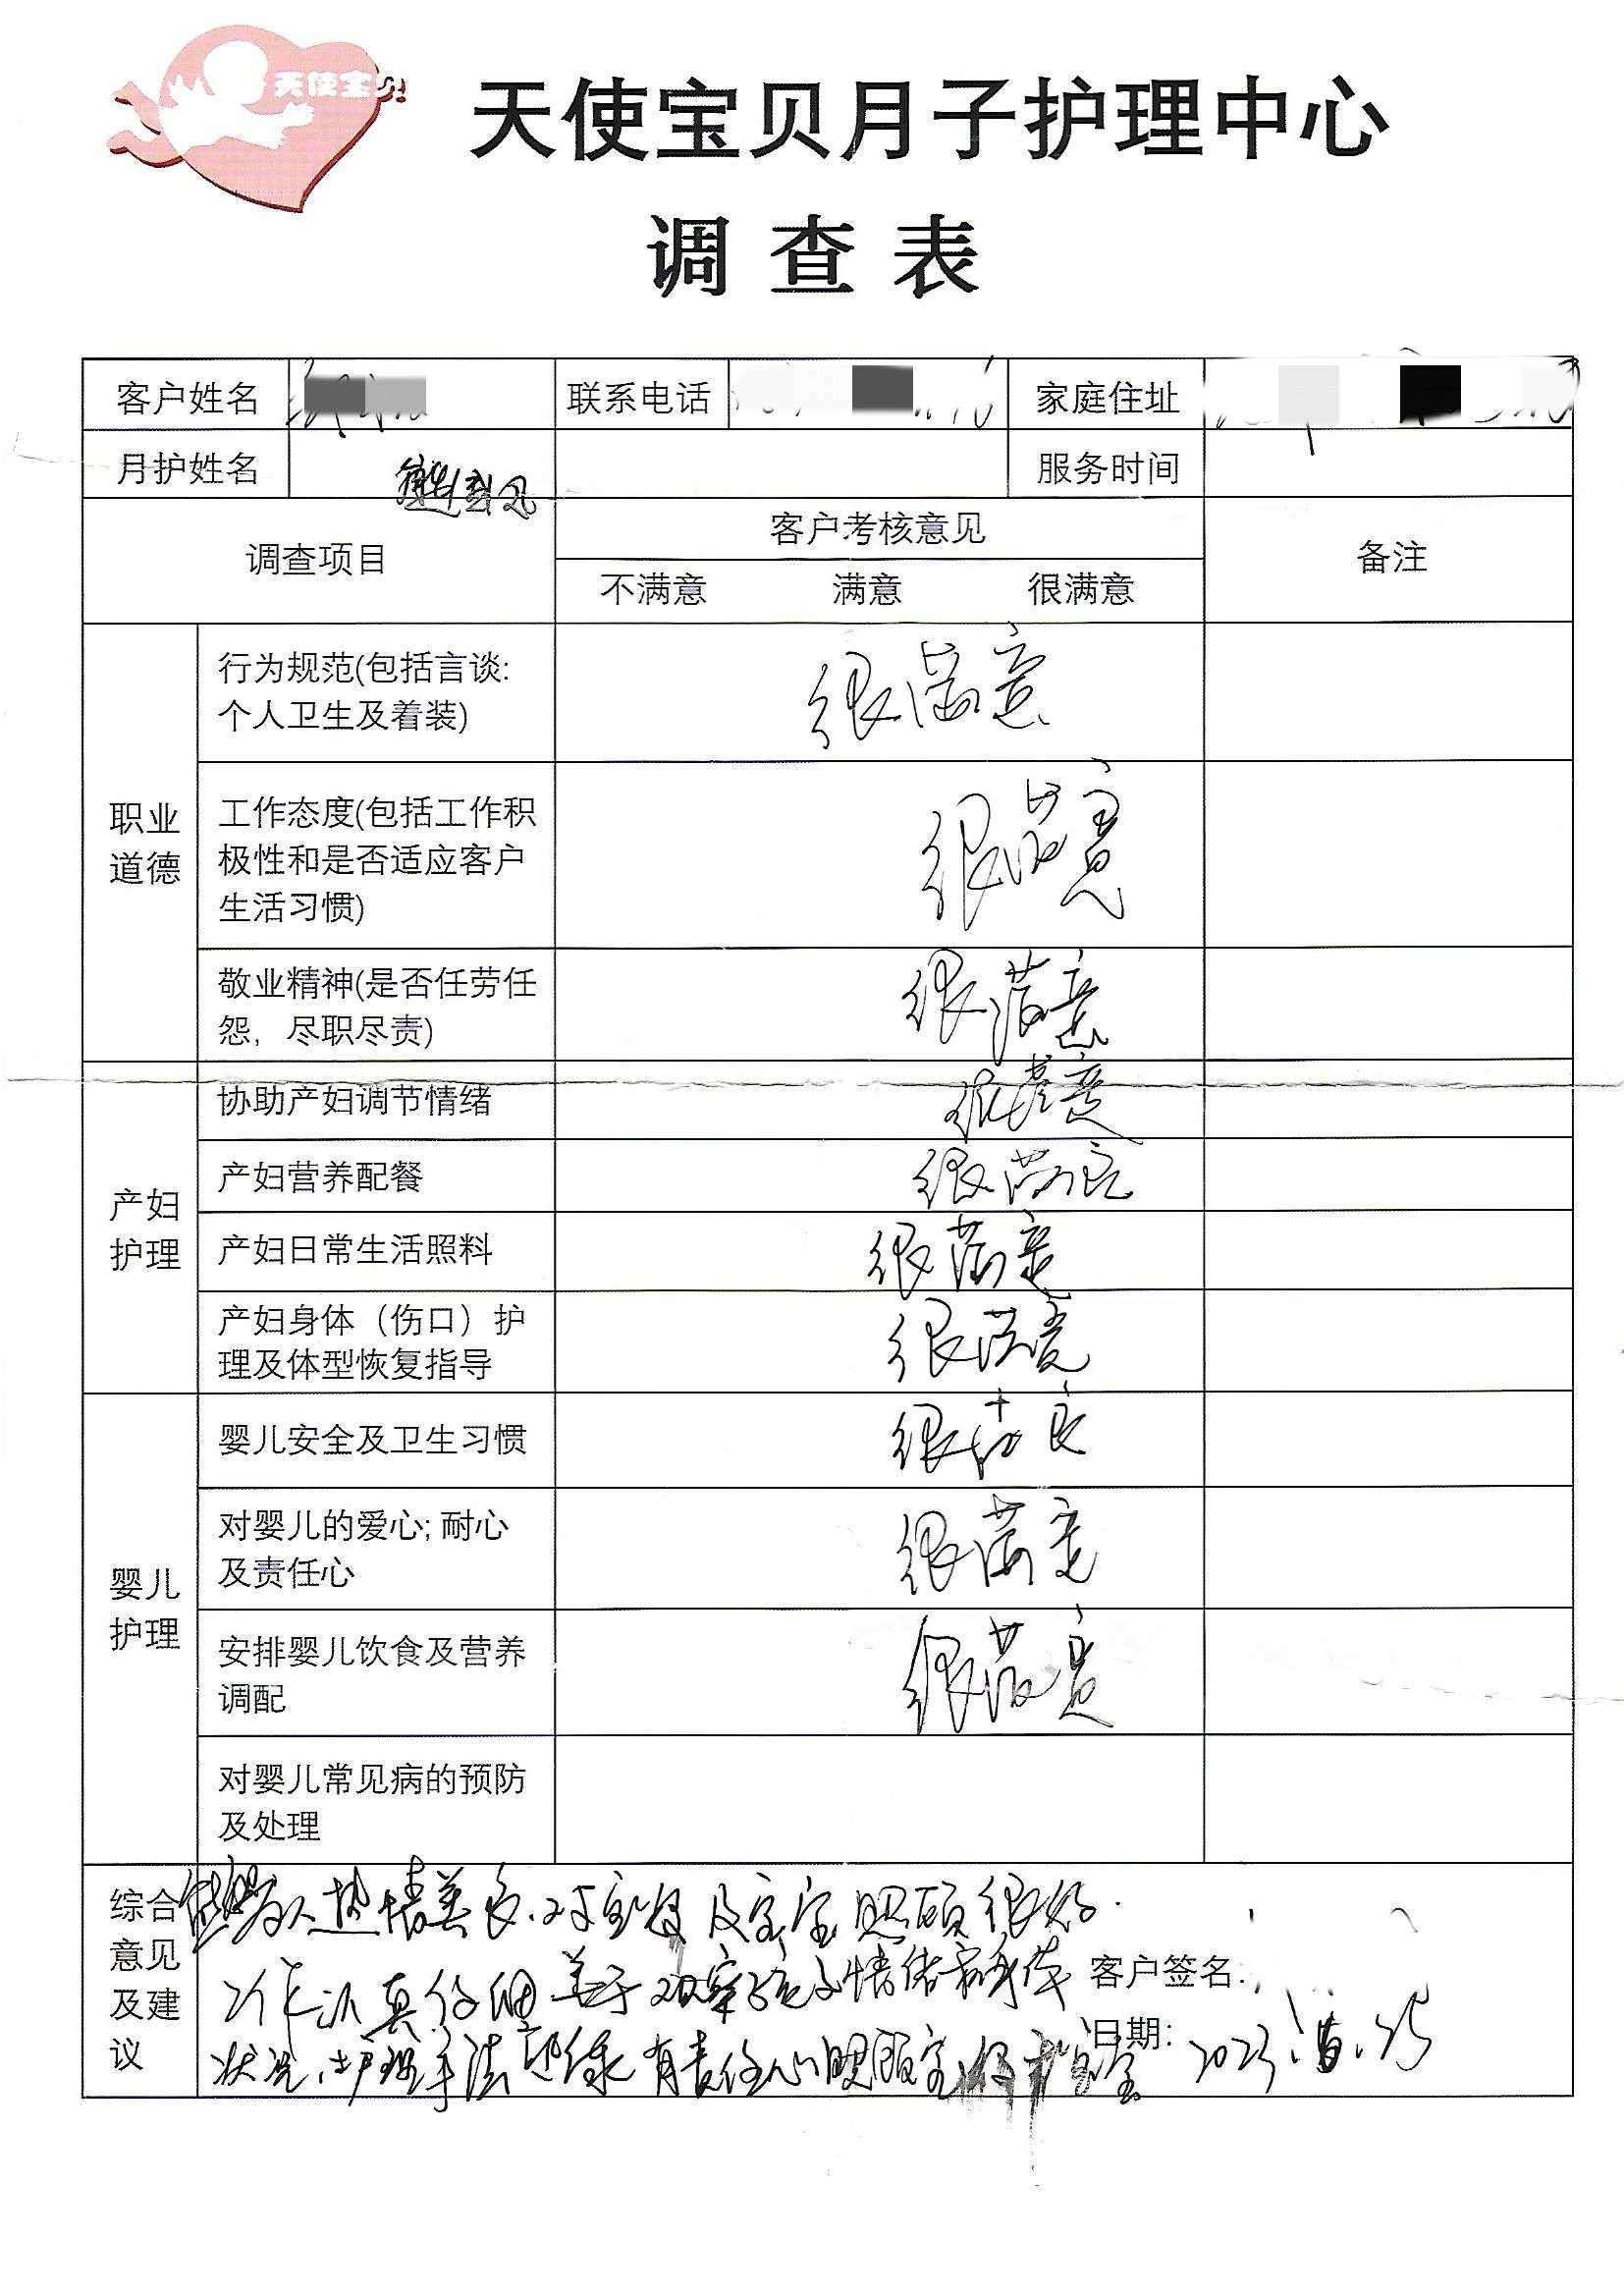 天使宝贝
天使宝贝月子护理中心
调查表
客户姓名 联系电话 家庭住址
月护姓名 服务时间
调查项目 客户考核意见 备注
不满意 满意 很满意
职业
道德
行为规范(包括言谈:
个人卫生及着装)
很满意
工作态度(包括工作积
极性和是否适应客户
生活习惯)
很满意
敬业精神(是否任劳任
怨，尽职尽责)
很满意
产妇
护理
协助产妇调节情绪 很满意
产妇营养配餐 很满意
产妇日常生活照料 很满意
产妇身体（伤口）护
理及体型恢复指导
很满意
婴儿
护理
婴儿安全及卫生习惯 很满意
对婴儿的爱心; 耐心
及责任心
很满意
安排婴儿饮食及营养
调配
很满意
对婴儿常见病的预防
及处理
综合
意见
及建
议
为人热情善良、对宝妈及宝宝照顾很好.
工作认真仔细 善于观察宝宝情绪和身体
状况、护理手法熟练 有责任心照顾宝妈和宝宝
客户签名:
日期: 2023.